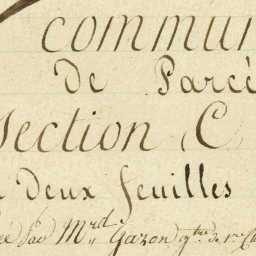 commun
de Parcé
Section C
deux feuilles
par Mrd Gazon